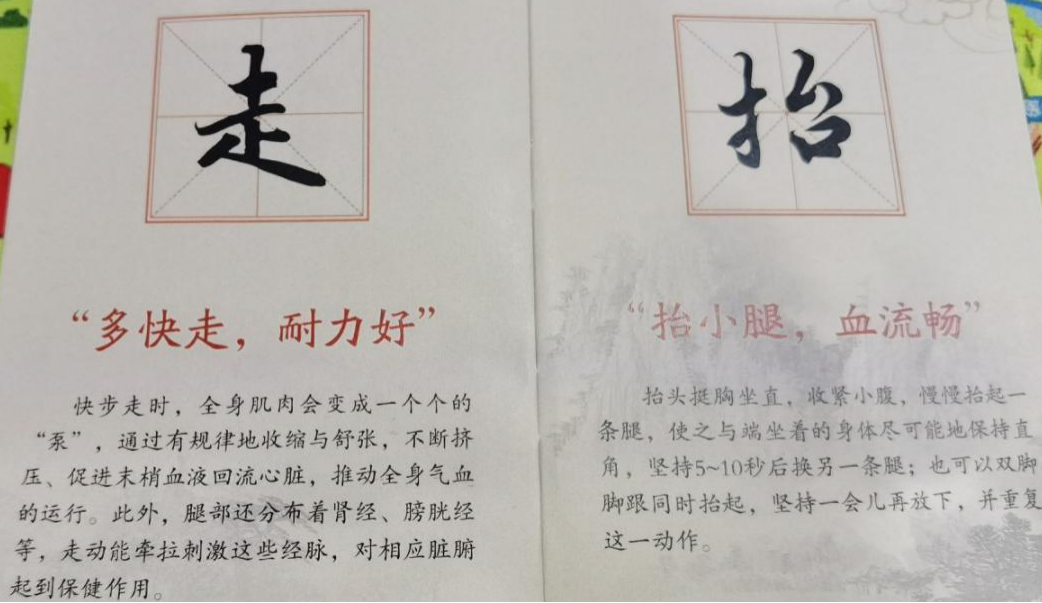 走
“多快走，耐力好”
快步走时，全身肌肉会变成一个个的
“泵”，通过有规律地收缩与舒张，不断挤
压、促进末梢血液回流心脏，推动全身气血
的运行。此外，腿部还分布着肾经、膀胱经
等，走动能牵拉刺激这些经脉，对相应脏腑
起到保健作用。
抬
“抬小腿，血流畅”
抬头挺胸坐直，收紧小腹，慢慢抬起一
条腿，使之与端坐着的身体尽可能地保持直
角，坚持5~10秒后换另一条腿；也可以双脚
脚跟同时抬起，坚持一会儿再放下，并重复
这一动作。